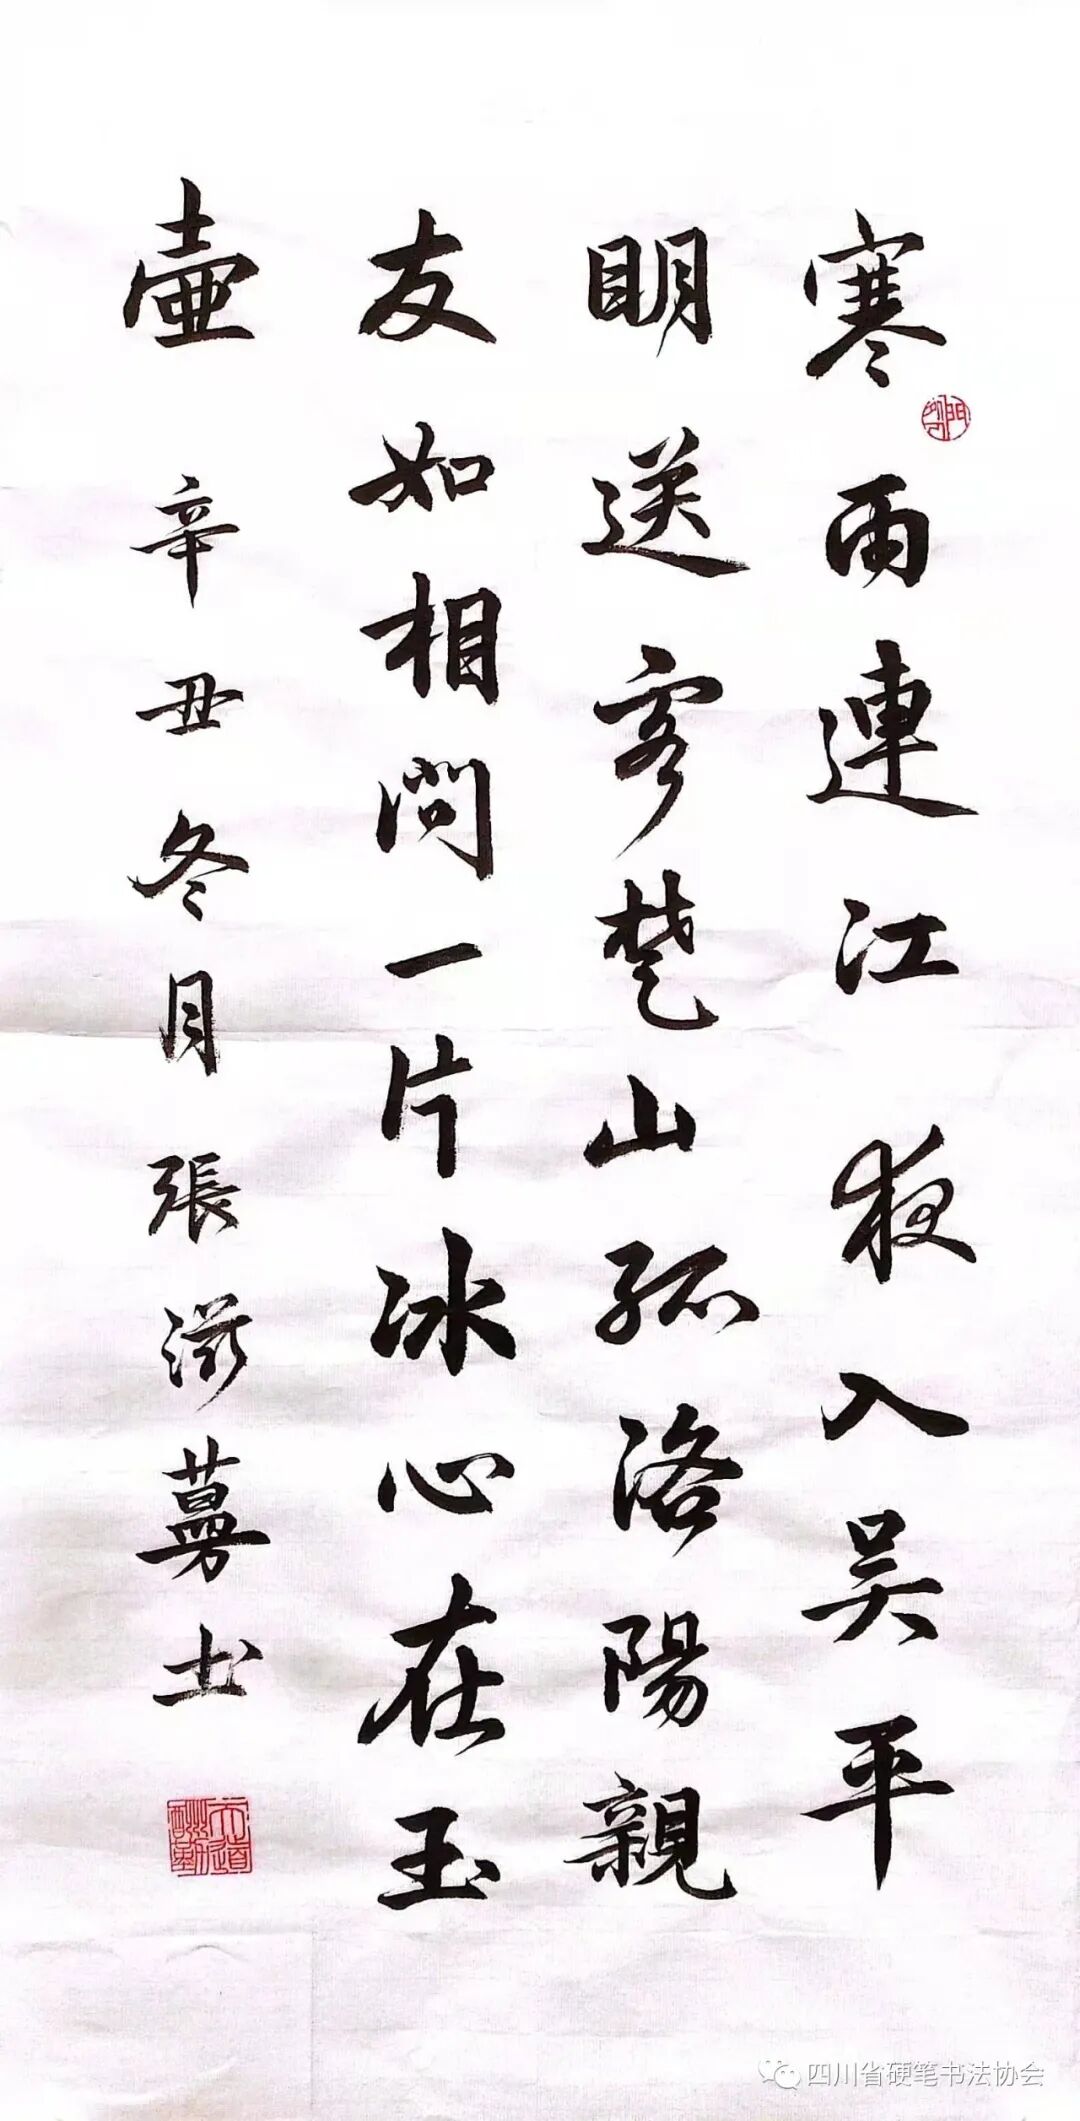 寒雨連江夜入吴平
明送客楚山孤洛陽親
友如相問一片冰心在玉
壷
辛丑冬月張滋蕚书
天道酬勤
四川省硬笔书法协会